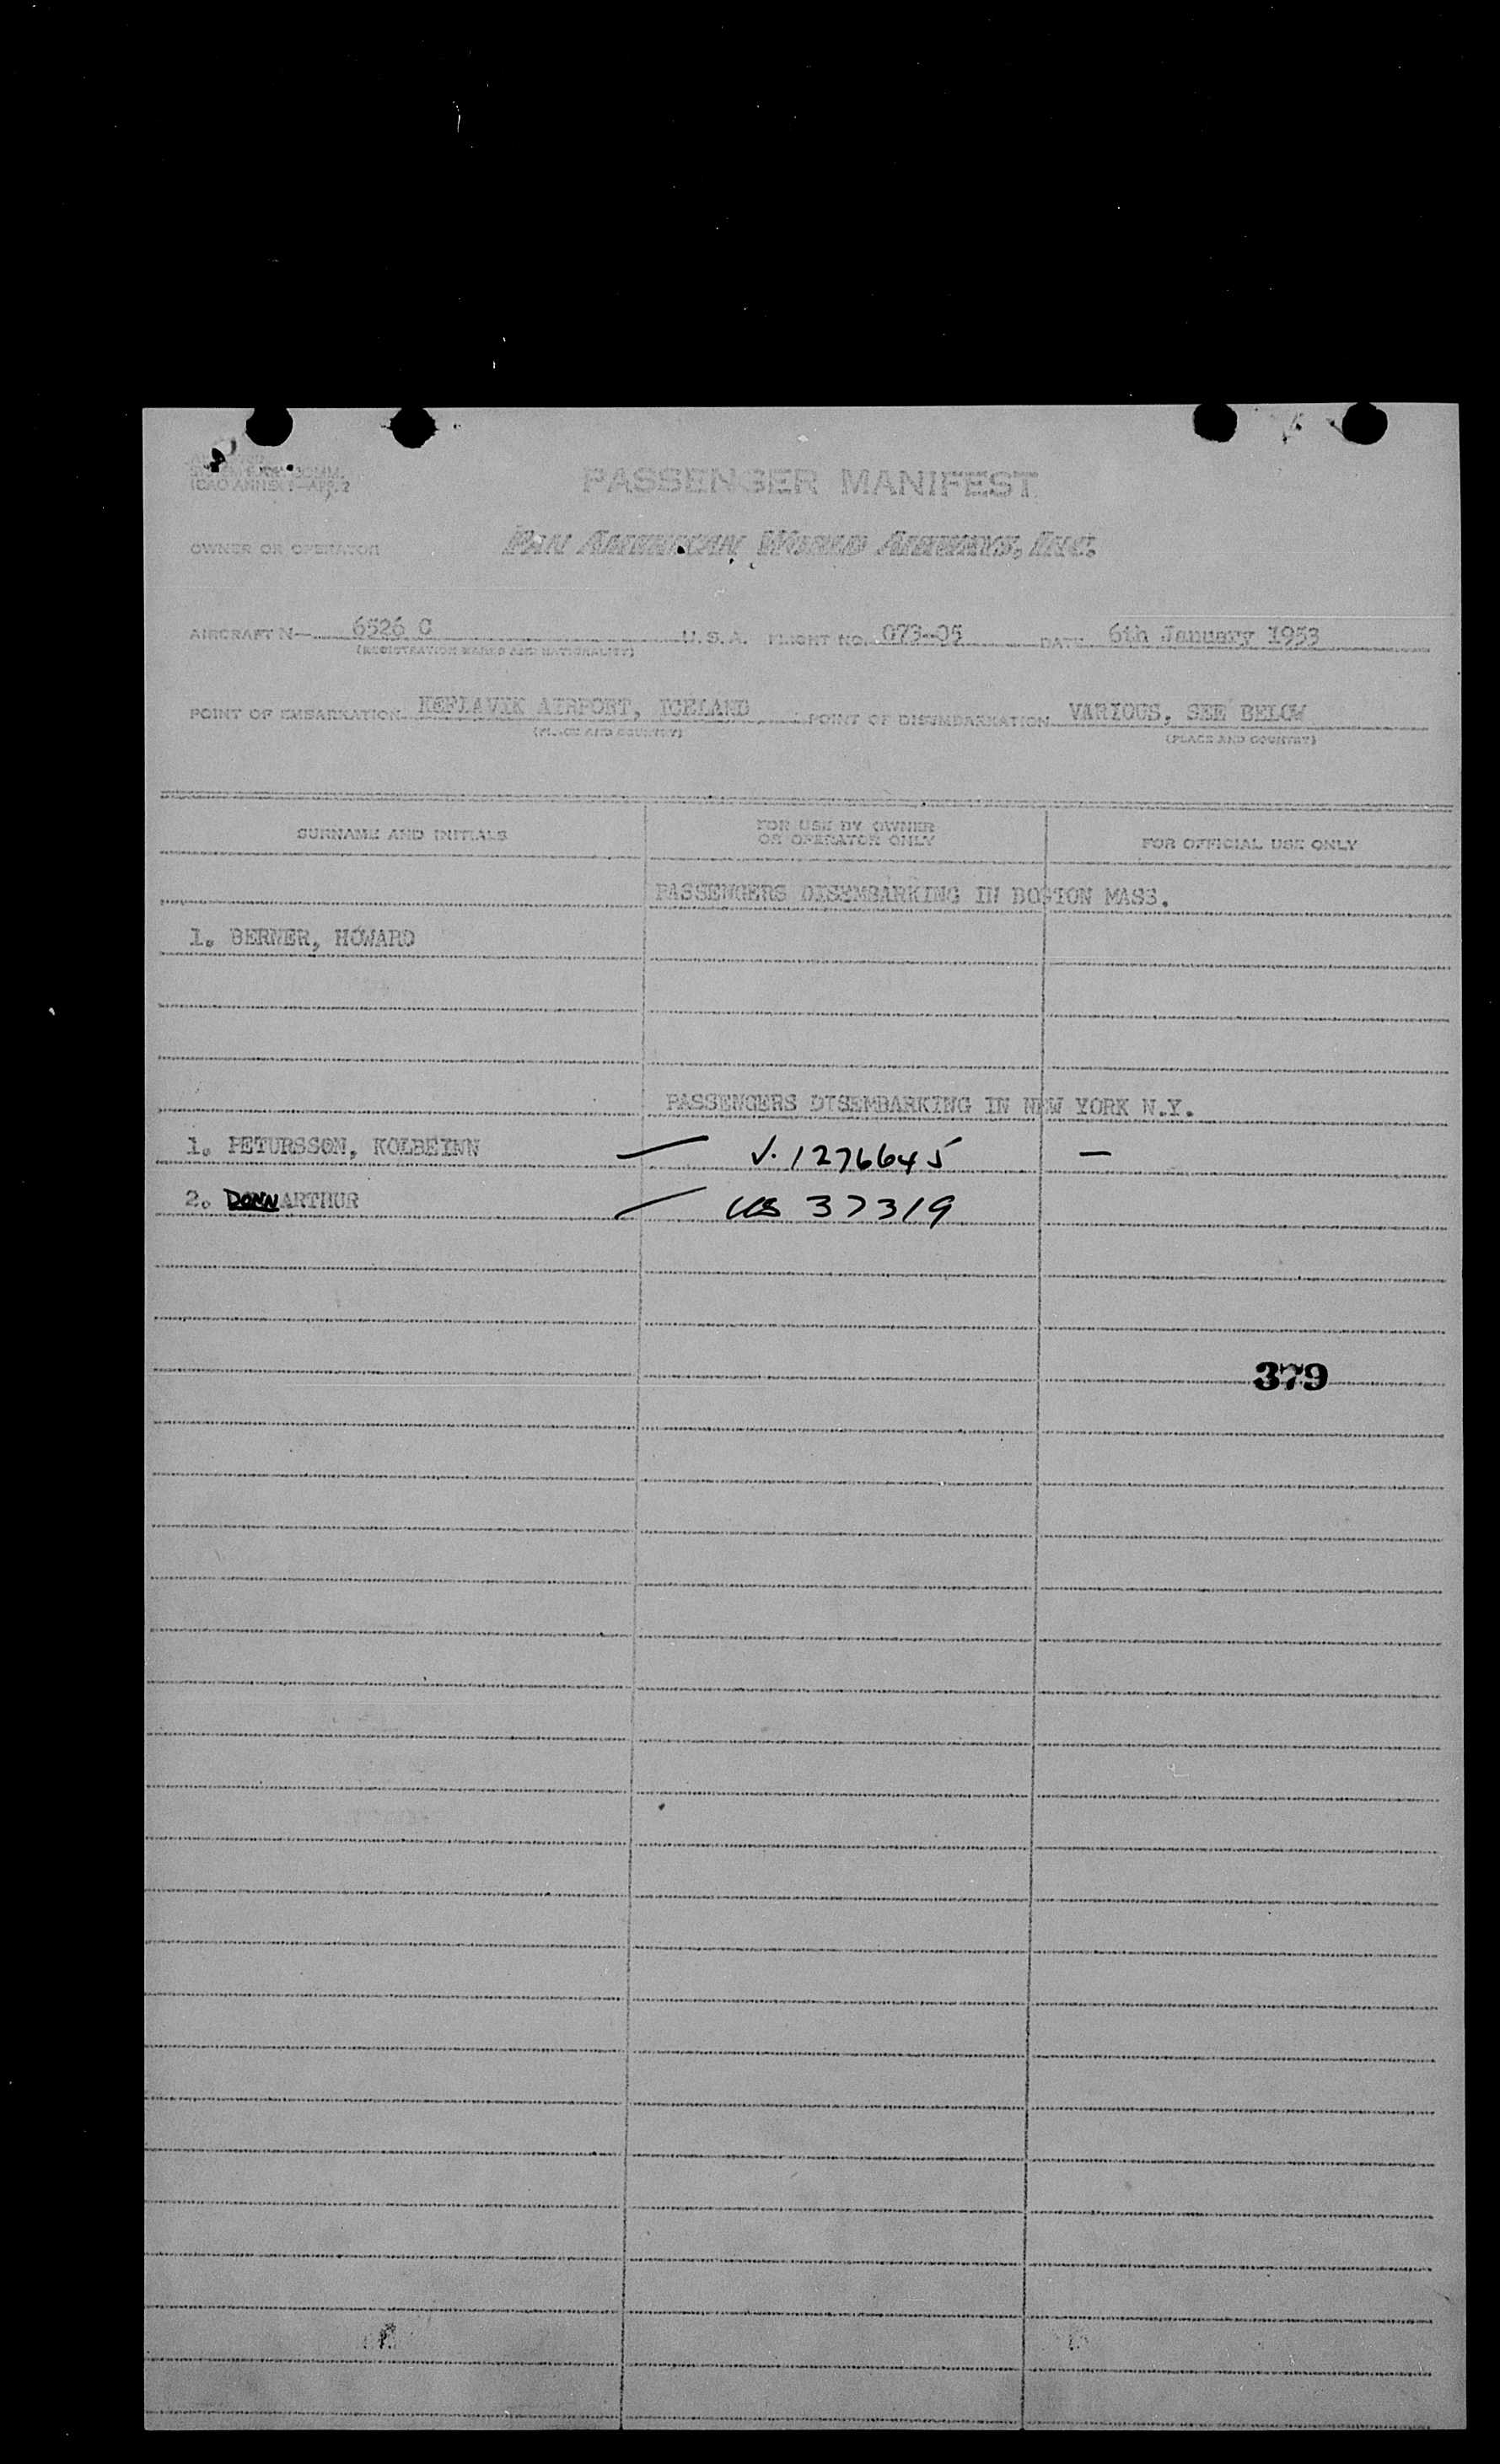 COMM.
ICAO ANNEX 9—APP. 2
PASSENGER MANIFEST
OWNER OR OPERATOR PAN AMERICAN WORLD AIRWAYS, INC.
AIRCRAFT N— 6526 C U.S.A. FLIGHT NO. 073-05 DATE 6th January 1953
(REGISTRATION MARKS AND NATIONALITY)
POINT OF EMBARKATION KEFLAVIK AIRPORT, ICELAND POINT OF DISEMBARKATION VARIOUS, SEE BELOW
(PLACE AND COUNTRY) (PLACE AND COUNTRY)
SURNAME AND INITIALS FOR USE BY OWNER OR OPERATOR ONLY FOR OFFICIAL USE ONLY
PASSENGERS DISEMBARKING IN BOSTON MASS.
1. BERNER, HOWARD
PASSENGERS DISEMBARKING IN NEW YORK N.Y.
1. PETURSSON, KOLBEINN — V. 1276645 —
2. DONN ARTHUR — US 37319
379